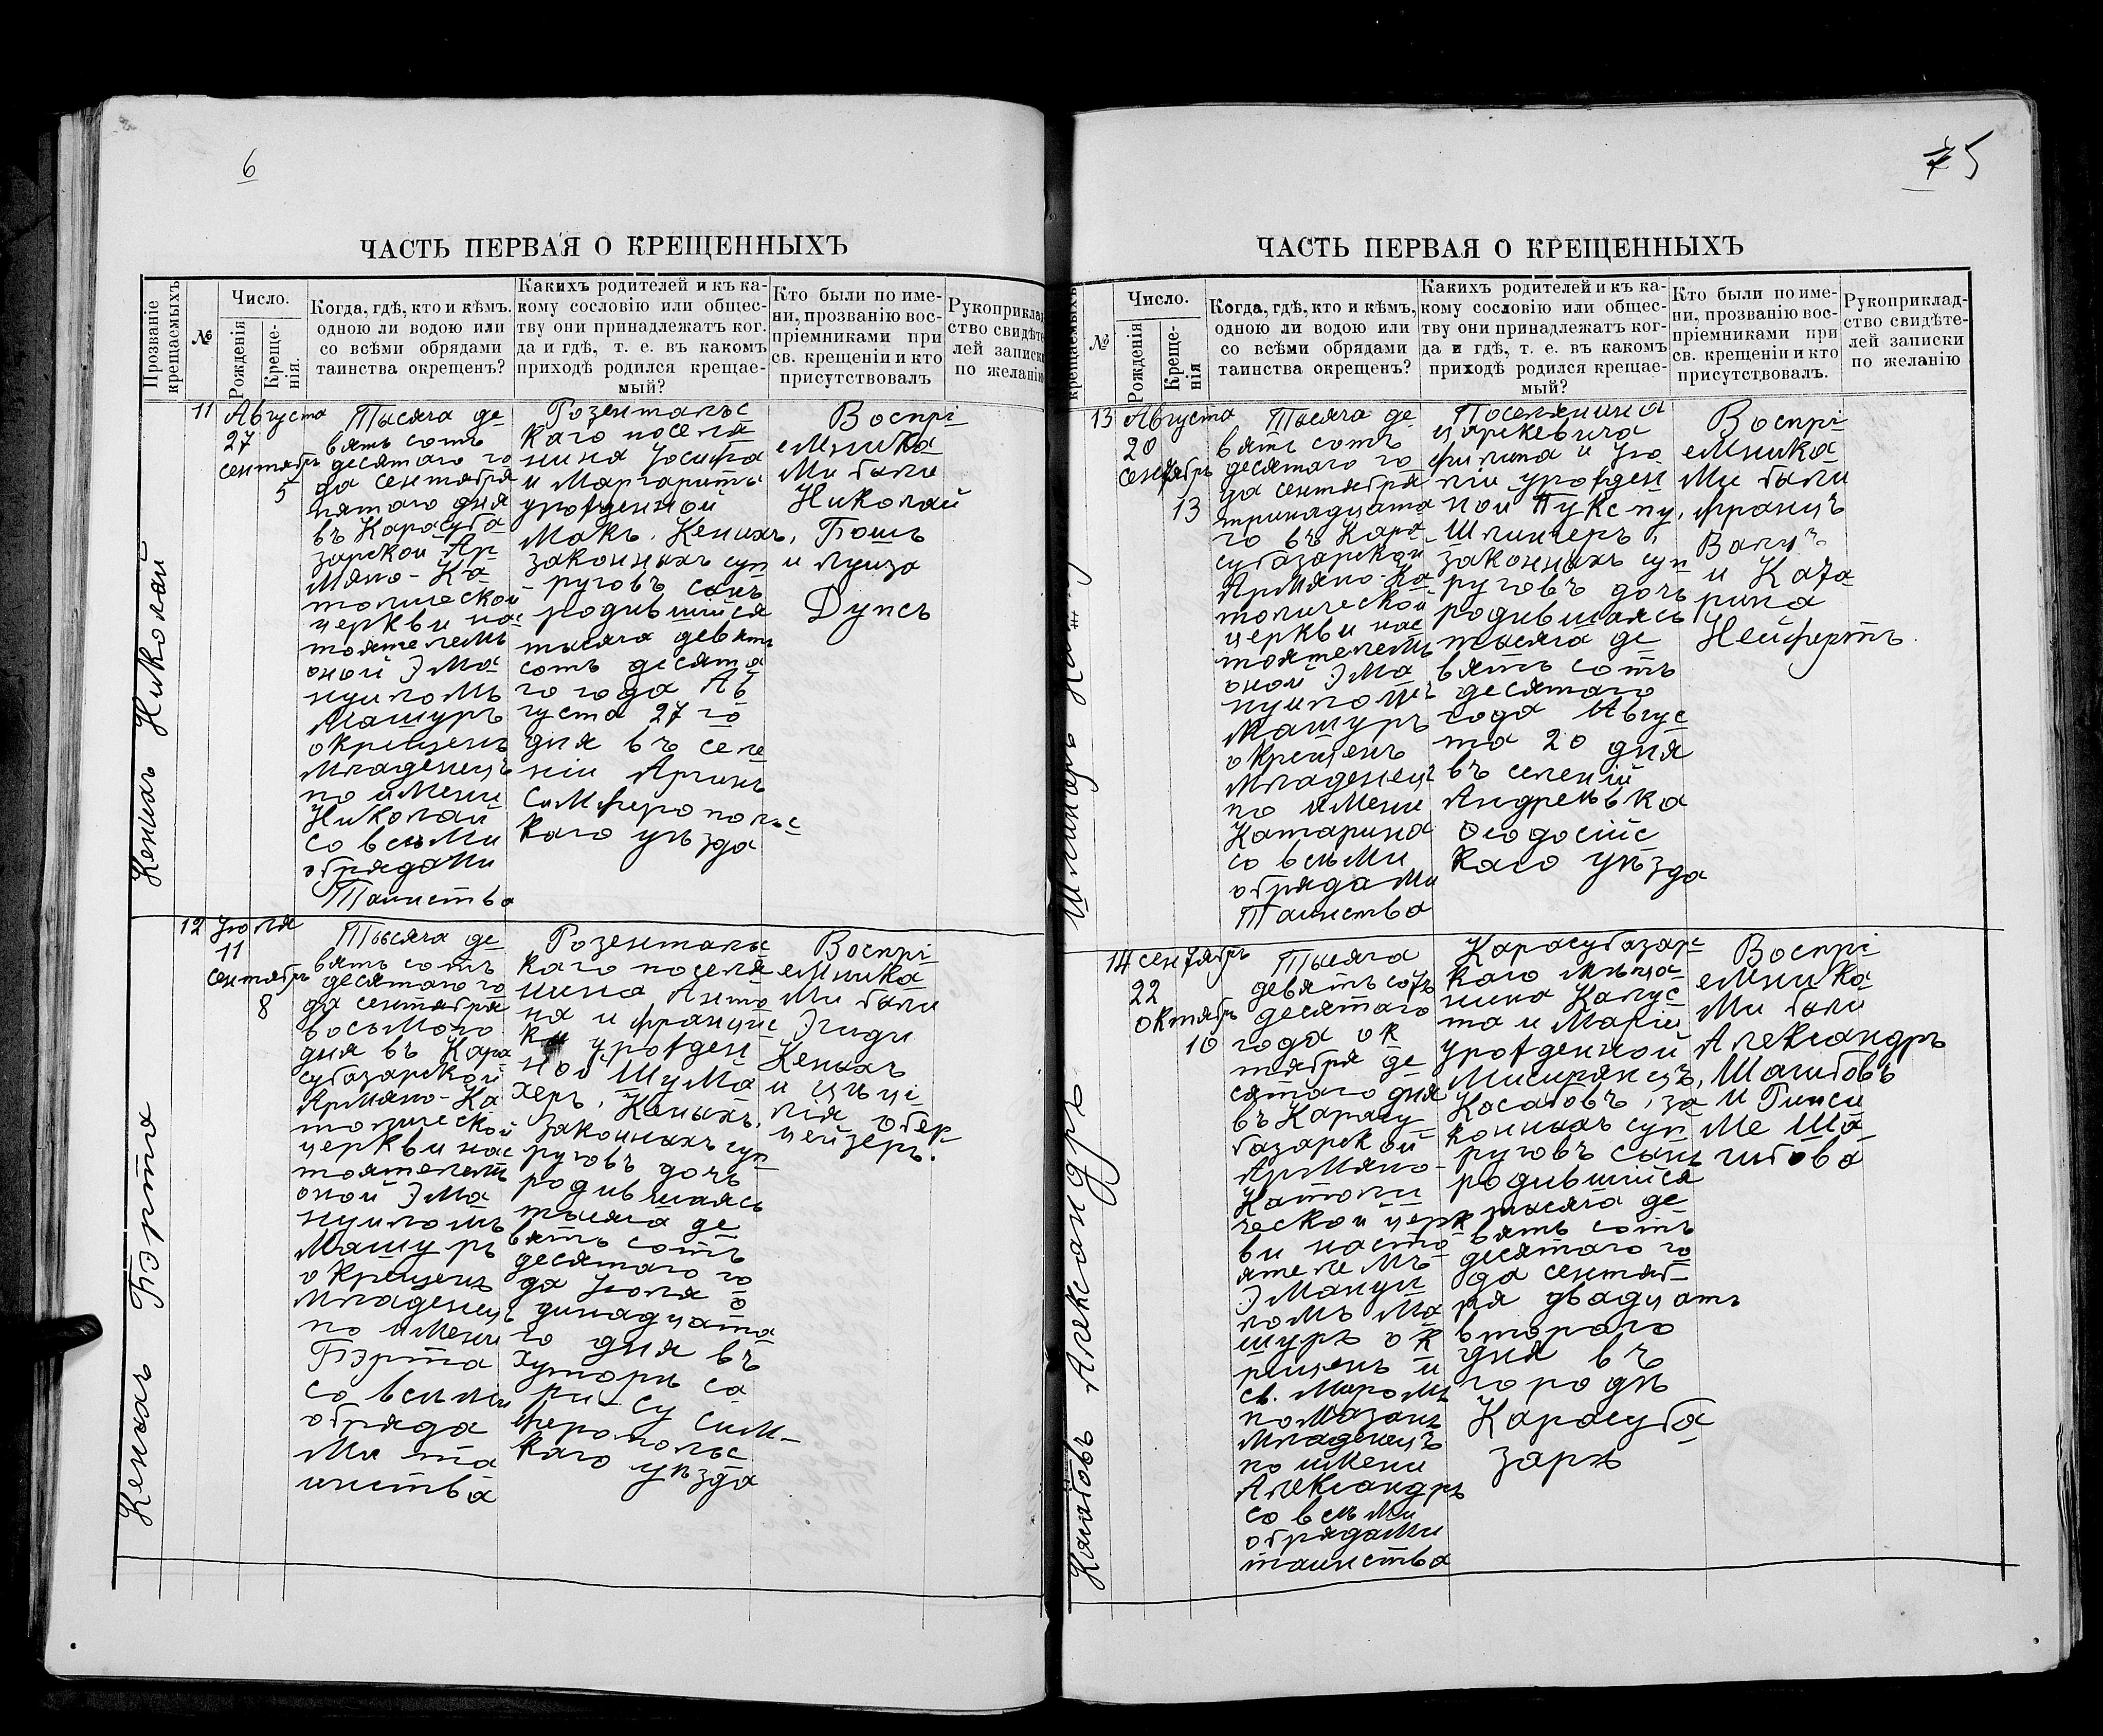 6
ЧАСТЬ ПЕРВАЯ О КРЕЩЕННЫХЪ
Прозваніе
крещаемыхъ
№
Число.
Рожденія
Креще-
нія.
Когда, гдѣ, кто и кѣмъ.
одною ли водою или
со всѣми обрядами
таинства окрещенъ?
Какихъ родителей и къ ка-
кому сословію или общес-
тву они принадлежатъ ког.
да и гдѣ, т. е. въ какомъ
приходѣ родился крещае-
мый?
Кто были по име-
ни, прозванію вос-
пріемниками при
св. крещеніи и кто
присутствовалъ
Рукоприклад
ство свидѣте
лей записки
по желанію
Кенихъ Николай
11
Августа
27
сентябрь
5
Тысяча де
вять сотъ
десятаго го
да сентября
пятаго дня
въ Карасуба
зарской Ар
мяно-Ка
толической
церкви нас
тоятелемъ
оной Эма
нуиломъ
Машуръ
окрещенъ
младенецъ
по имени
Николай
со всѣми
обрядами
Таинства
Розентальс
каго поселя
нина Іосифа
и Маргариты
урожденной
Макъ. Кенихъ,
законныхъ суп
руговъ сынъ
родившійся
тысяча девять
сотъ десята
го года Ав
густа 27 го
дня въ селе
ніи Аргинъ
Симферопольс
каго уѣзда
Воспрі
емника
ми были
Николай
Гошъ
и Луиза
Дупсъ
Кенихъ Бэрта
12
Іюля
11
сентябрь
8
Тысяча де
вять сотъ
десятаго го
да сентября
восьмого
дня въ Кара
субазарской
Армяно-Ка
толической
церкви нас
тоятелемъ
оной Эма
нуиломъ
Машуръ
окрещенъ
младенецъ
по имени
Бэрта
со всѣми
обряда
ми та
инства
Розентальс
каго поселя
нина Анто
на и Францис
ки урожден
ной Шума
херъ, Кенихъ,
законныхъ суп
руговъ дочь
родившаяся
тысяча де
вять сотъ
десятаго го
да Іюля о
динадцата
го дня въ
хуторѣ Са
ри-Су Сим-
феропольс
каго уѣзда
Воспрі
емника
ми были
Эгиди
Кенихъ
и Цици
лія Обер-
нейзеръ.
75
ЧАСТЬ ПЕРВАЯ О КРЕЩЕННЫХЪ
крещаемыхъ
№
Число.
Рожденія
Креще-
нія
Когда, гдѣ, кто и кѣмъ,
одною ли водою или
со всѣми обрядами
таинства окрещенъ?
Какихъ родителей и къ ка-
кому сословію или общес-
тву они принадлежатъ ког-
да и гдѣ, т. е. въ какомъ
приходѣ родился крещае-
мый?
Кто были по име-
ни, прозванію вос-
пріемниками при
св. крещеніи и кто
присутствовалъ.
Рукоприклад-
ство свидѣте-
лей записки
по желанію
13
Августа
20
Сентябрь
13
Тысяча де
вять сотъ
десятаго го
да сентября
тринадцата
го въ Кара
субазарской
Армяно-Ка
толической
церкви нас
тоятелемъ
оной Эма
нуиломъ
Машуръ
окрещенъ
младенецъ
по имени
Катарина
со всѣми
обрядами
Таинства
Поселянина
Царкевича
Филипа и Ю
ліи урожден
ной
Шлингеръ,
законныхъ суп
руговъ дочь
родившаяся
тысяча де
вять сотъ
десятаго
года Авгус
та 20 дня
въ селеніи
Андреевка
Ѳеодосійс
каго уѣзда
Воспрі
емника
ми были
Францъ
и Ката
рина
Нейфертъ.
Косатовъ Александръ
14
сентябрь
22
октябрь
10
Тысяча
девять сотъ
десятаго
года ок
тября де
сятаго дня
въ Карасу
базарской
Армяно-
Католи
ческой церк
ви насто
ятелемъ
Эмануи
ломъ Ма
шуръ ок
рещенъ и
св. Миромъ
помазанъ
младенецъ
по имени
Александръ
со всѣми
обрядами
таинства
Карасубазарс
каго мѣща
нина Капус
та и Маріи
урожденной
Мисирянцъ,
Косатовъ, за
конныхъ суп
руговъ сынъ
родившійся
тысяча де
вять сотъ
десятаго го
да сентяб-
ря двадцать
второго
дня въ
городѣ
Карасуба
зарѣ
Воспрі
емника
ми были
Александръ
Шагитовъ
и Рипси
ме Ша
гитова